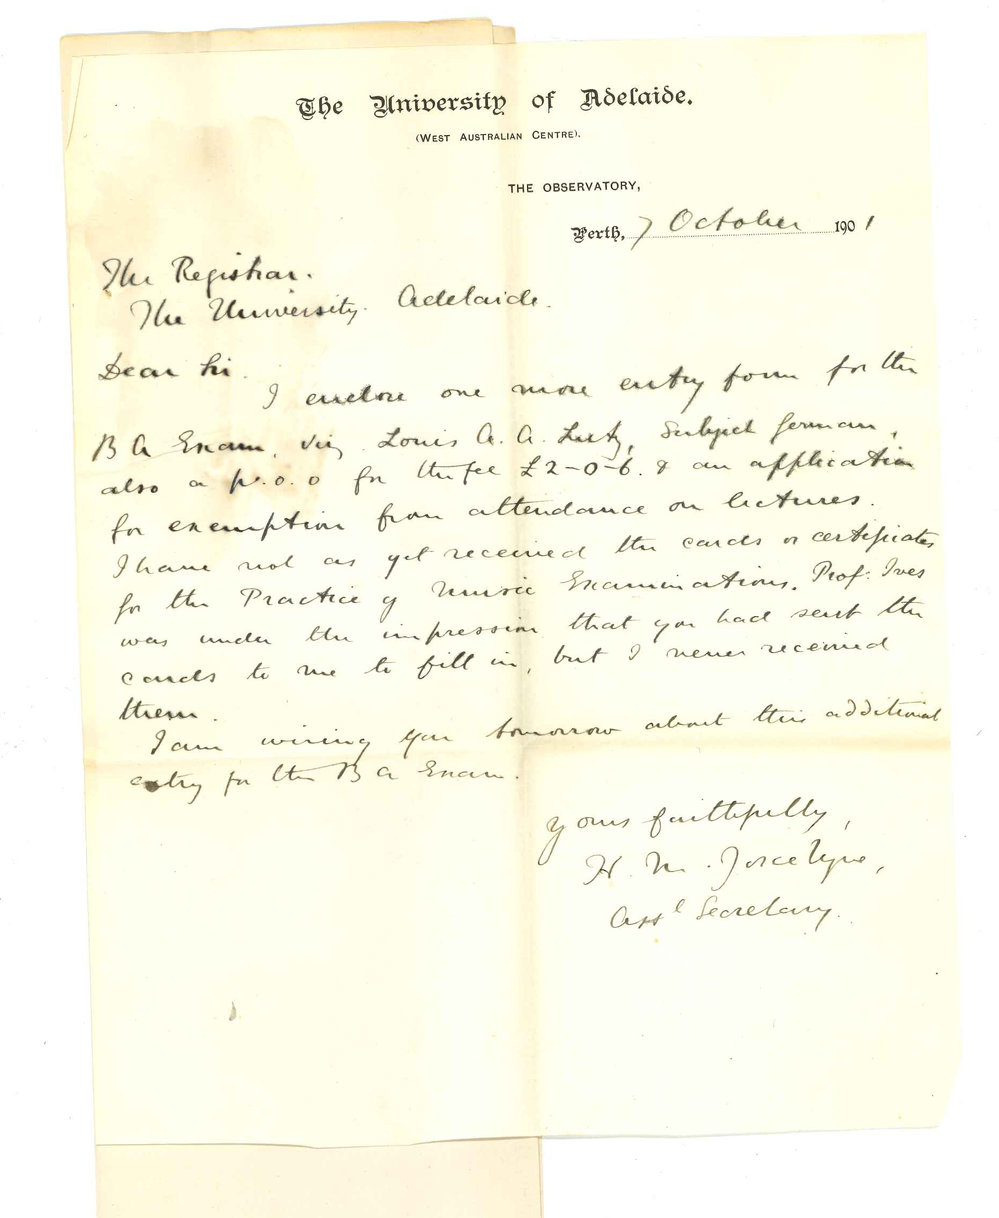 The University of Adelaide.
(West Australian Centre).
THE OBSERVATORY,
Perth, 7 October 1901
The Registrar.
The University. Adelaide.
Dear Sir.
I enclose one more entry form for the
B A Exam, viz. Louis A. A. Subject German,
also a p.o.o for the fee £2-0-6. & an application
for exemption from attendance on lectures.
I have not as yet received the cards or certificates
for the Practice of Music Examinations. Prof. Ives
was under the impression that you had sent the
cards to me to fill in, but I never received
them.
I am wiring you tomorrow about this additional
entry for the B A Exam.
Yours faithfully,
H. M. Jocelyne,
Asst Secretary.